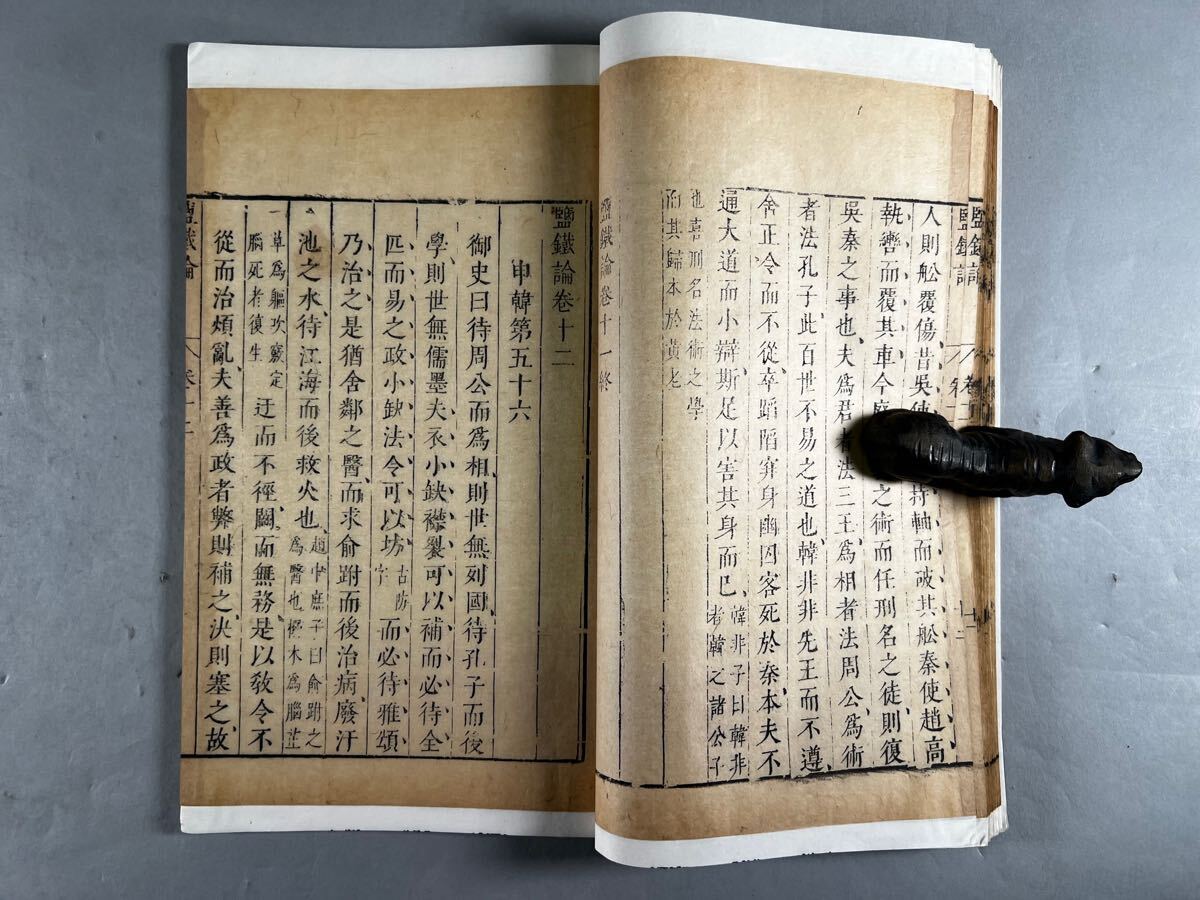 人則舩覆傷昔吳使
持軸而破其舩秦使趙高
執轡而覆其車今廢
之術而任刑名之徒則復
吳秦之事也夫爲君者法三王爲相者法周公爲術
者法孔子此百世不易之道也韓非非先王而不遵
舍正令而不從卒蹈䧟穽身幽囚客死於秦本夫不
通大道而小辯斯足以害其身而已
韓非子曰韓非
者韓之諸公子
也喜刑名法術之學
而其歸本於黃老
鹽鐵論卷十一終
鹽鐵論卷十二
申韓第五十六
御史曰待周公而爲相則世無列國待孔子而後
學則世無儒墨夫衣小缺襟裂可以補而必待全
匹而易之政小缺法令可以坊
古防
字
而必待雅頌
乃治之是猶舍鄰之醫而求俞跗而後治病廢汙
池之水待江海而後救火也
趙中庶子曰俞跗之
爲醫也搦木爲腦芷
草爲軀吹竅定
腦死者復生
迂而不徑闕而無務是以敎令不
從而治煩亂夫善爲政者弊則補之決則塞之故
鹽鐵論
卷十二